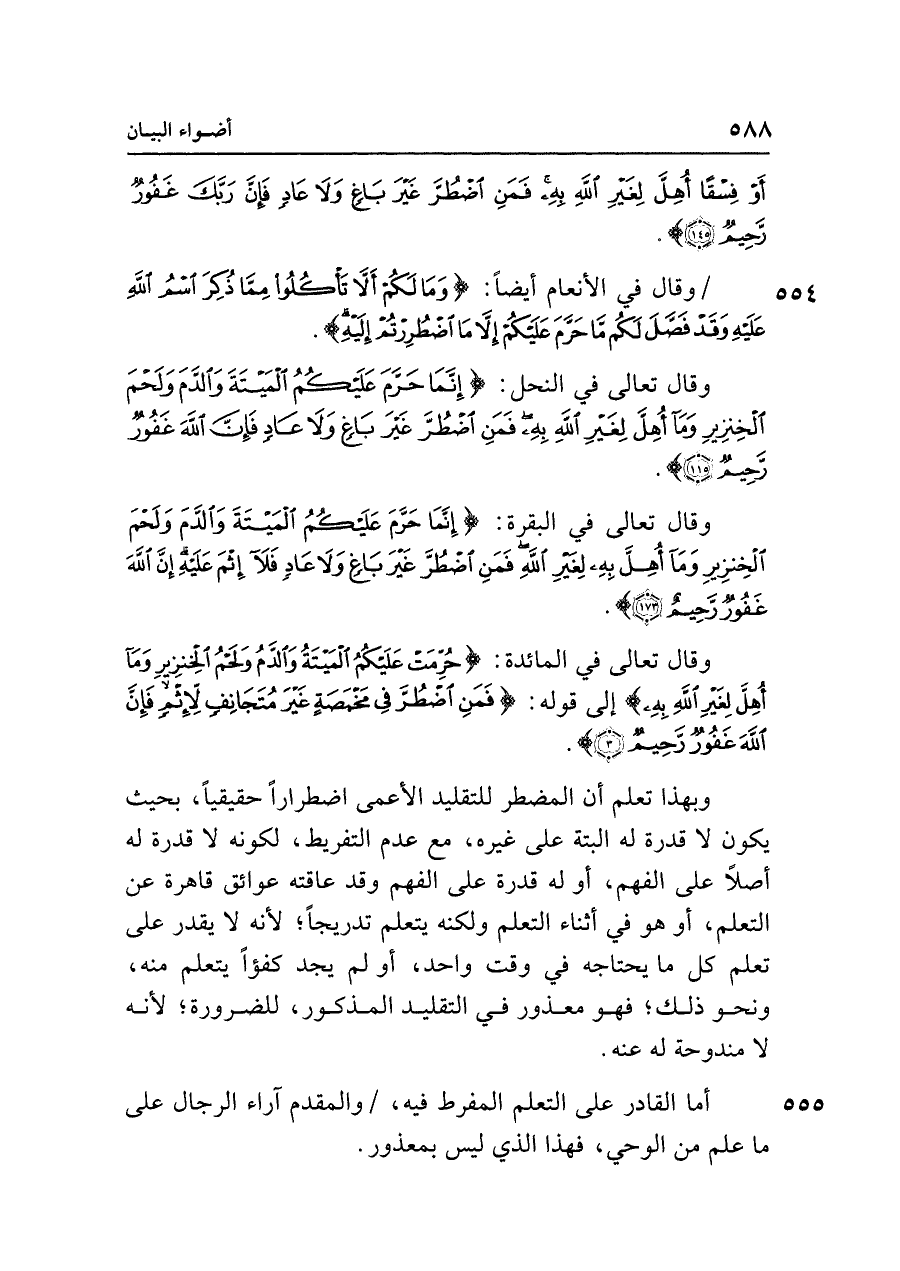 ٥٨٨ أضواء البيان
أَوْ فِسْقًا أُهِلَّ لِغَيْرِ ٱللَّهِ بِهِۦۚ فَمَنِ ٱضْطُرَّ غَيْرَ بَاغٍ وَلَا عَادٍ فَإِنَّ رَبَّكَ غَفُورٌ
رَّحِيمٌ ۝١٤٥﴾.
٥٥٤ / وقال في الأنعام أيضاً: ﴿وَمَا لَكُمْ أَلَّا تَأْكُلُوا۟ مِمَّا ذُكِرَ ٱسْمُ ٱللَّهِ
عَلَيْهِ وَقَدْ فَصَّلَ لَكُم مَّا حَرَّمَ عَلَيْكُمْ إِلَّا مَا ٱضْطُرِرْتُمْ إِلَيْهِۗ﴾.
وقال تعالى في النحل: ﴿إِنَّمَا حَرَّمَ عَلَيْكُمُ ٱلْمَيْتَةَ وَٱلدَّمَ وَلَحْمَ
ٱلْخِنزِيرِ وَمَآ أُهِلَّ لِغَيْرِ ٱللَّهِ بِهِۦۖ فَمَنِ ٱضْطُرَّ غَيْرَ بَاغٍ وَلَا عَادٍ فَإِنَّ ٱللَّهَ غَفُورٌ
رَّحِيمٌ ۝١١٥﴾.
وقال تعالى في البقرة: ﴿إِنَّمَا حَرَّمَ عَلَيْكُمُ ٱلْمَيْتَةَ وَٱلدَّمَ وَلَحْمَ
ٱلْخِنزِيرِ وَمَآ أُهِلَّ بِهِۦ لِغَيْرِ ٱللَّهِۖ فَمَنِ ٱضْطُرَّ غَيْرَ بَاغٍ وَلَا عَادٍ فَلَآ إِثْمَ عَلَيْهِۚ إِنَّ ٱللَّهَ
غَفُورٌ رَّحِيمٌ ۝١٧٣﴾.
وقال تعالى في المائدة: ﴿حُرِّمَتْ عَلَيْكُمُ ٱلْمَيْتَةُ وَٱلدَّمُ وَلَحْمُ ٱلْخِنزِيرِ وَمَآ
أُهِلَّ لِغَيْرِ ٱللَّهِ بِهِۦ﴾ إلى قوله: ﴿فَمَنِ ٱضْطُرَّ فِى مَخْمَصَةٍ غَيْرَ مُتَجَانِفٍ لِّإِثْمٍۙ فَإِنَّ
ٱللَّهَ غَفُورٌ رَّحِيمٌ ۝٣﴾.
وبهذا تعلم أن المضطر للتقليد الأعمى اضطراراً حقيقياً، بحيث
يكون لا قدرة له البتة على غيره، مع عدم التفريط، لكونه لا قدرة له
أصلاً على الفهم، أو له قدرة على الفهم وقد عاقته عوائق قاهرة عن
التعلم، أو هو في أثناء التعلم ولكنه يتعلم تدريجاً؛ لأنه لا يقدر على
تعلم كل ما يحتاجه في وقت واحد، أو لم يجد كفؤاً يتعلم منه،
ونحو ذلك؛ فهو معذور في التقليد المذكور، للضرورة؛ لأنه
لا مندوحة له عنه.
٥٥٥ أما القادر على التعلم المفرط فيه، / والمقدم آراء الرجال على
ما علم من الوحي، فهذا الذي ليس بمعذور.